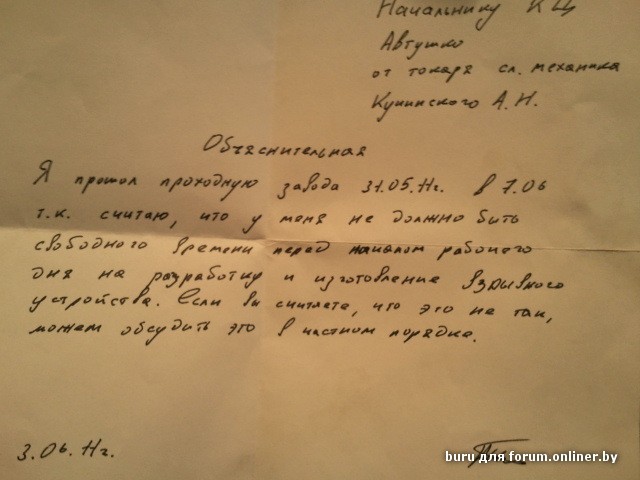 Начальнику КЦ
Автушко
от токаря сл. механика
Кунинского А.Н.
Объяснительная
Я прошол проходную завода 31.05.11г. в 7.06
т.к. считаю, что у меня не должно быть
свободного времени перед началом рабочего
дня на разработку и изготовление взрывного
устройства. Если вы считаете, что это не так,
можем обсудить это в частном порядке.
3.06.11г.
buru для forum.onliner.by